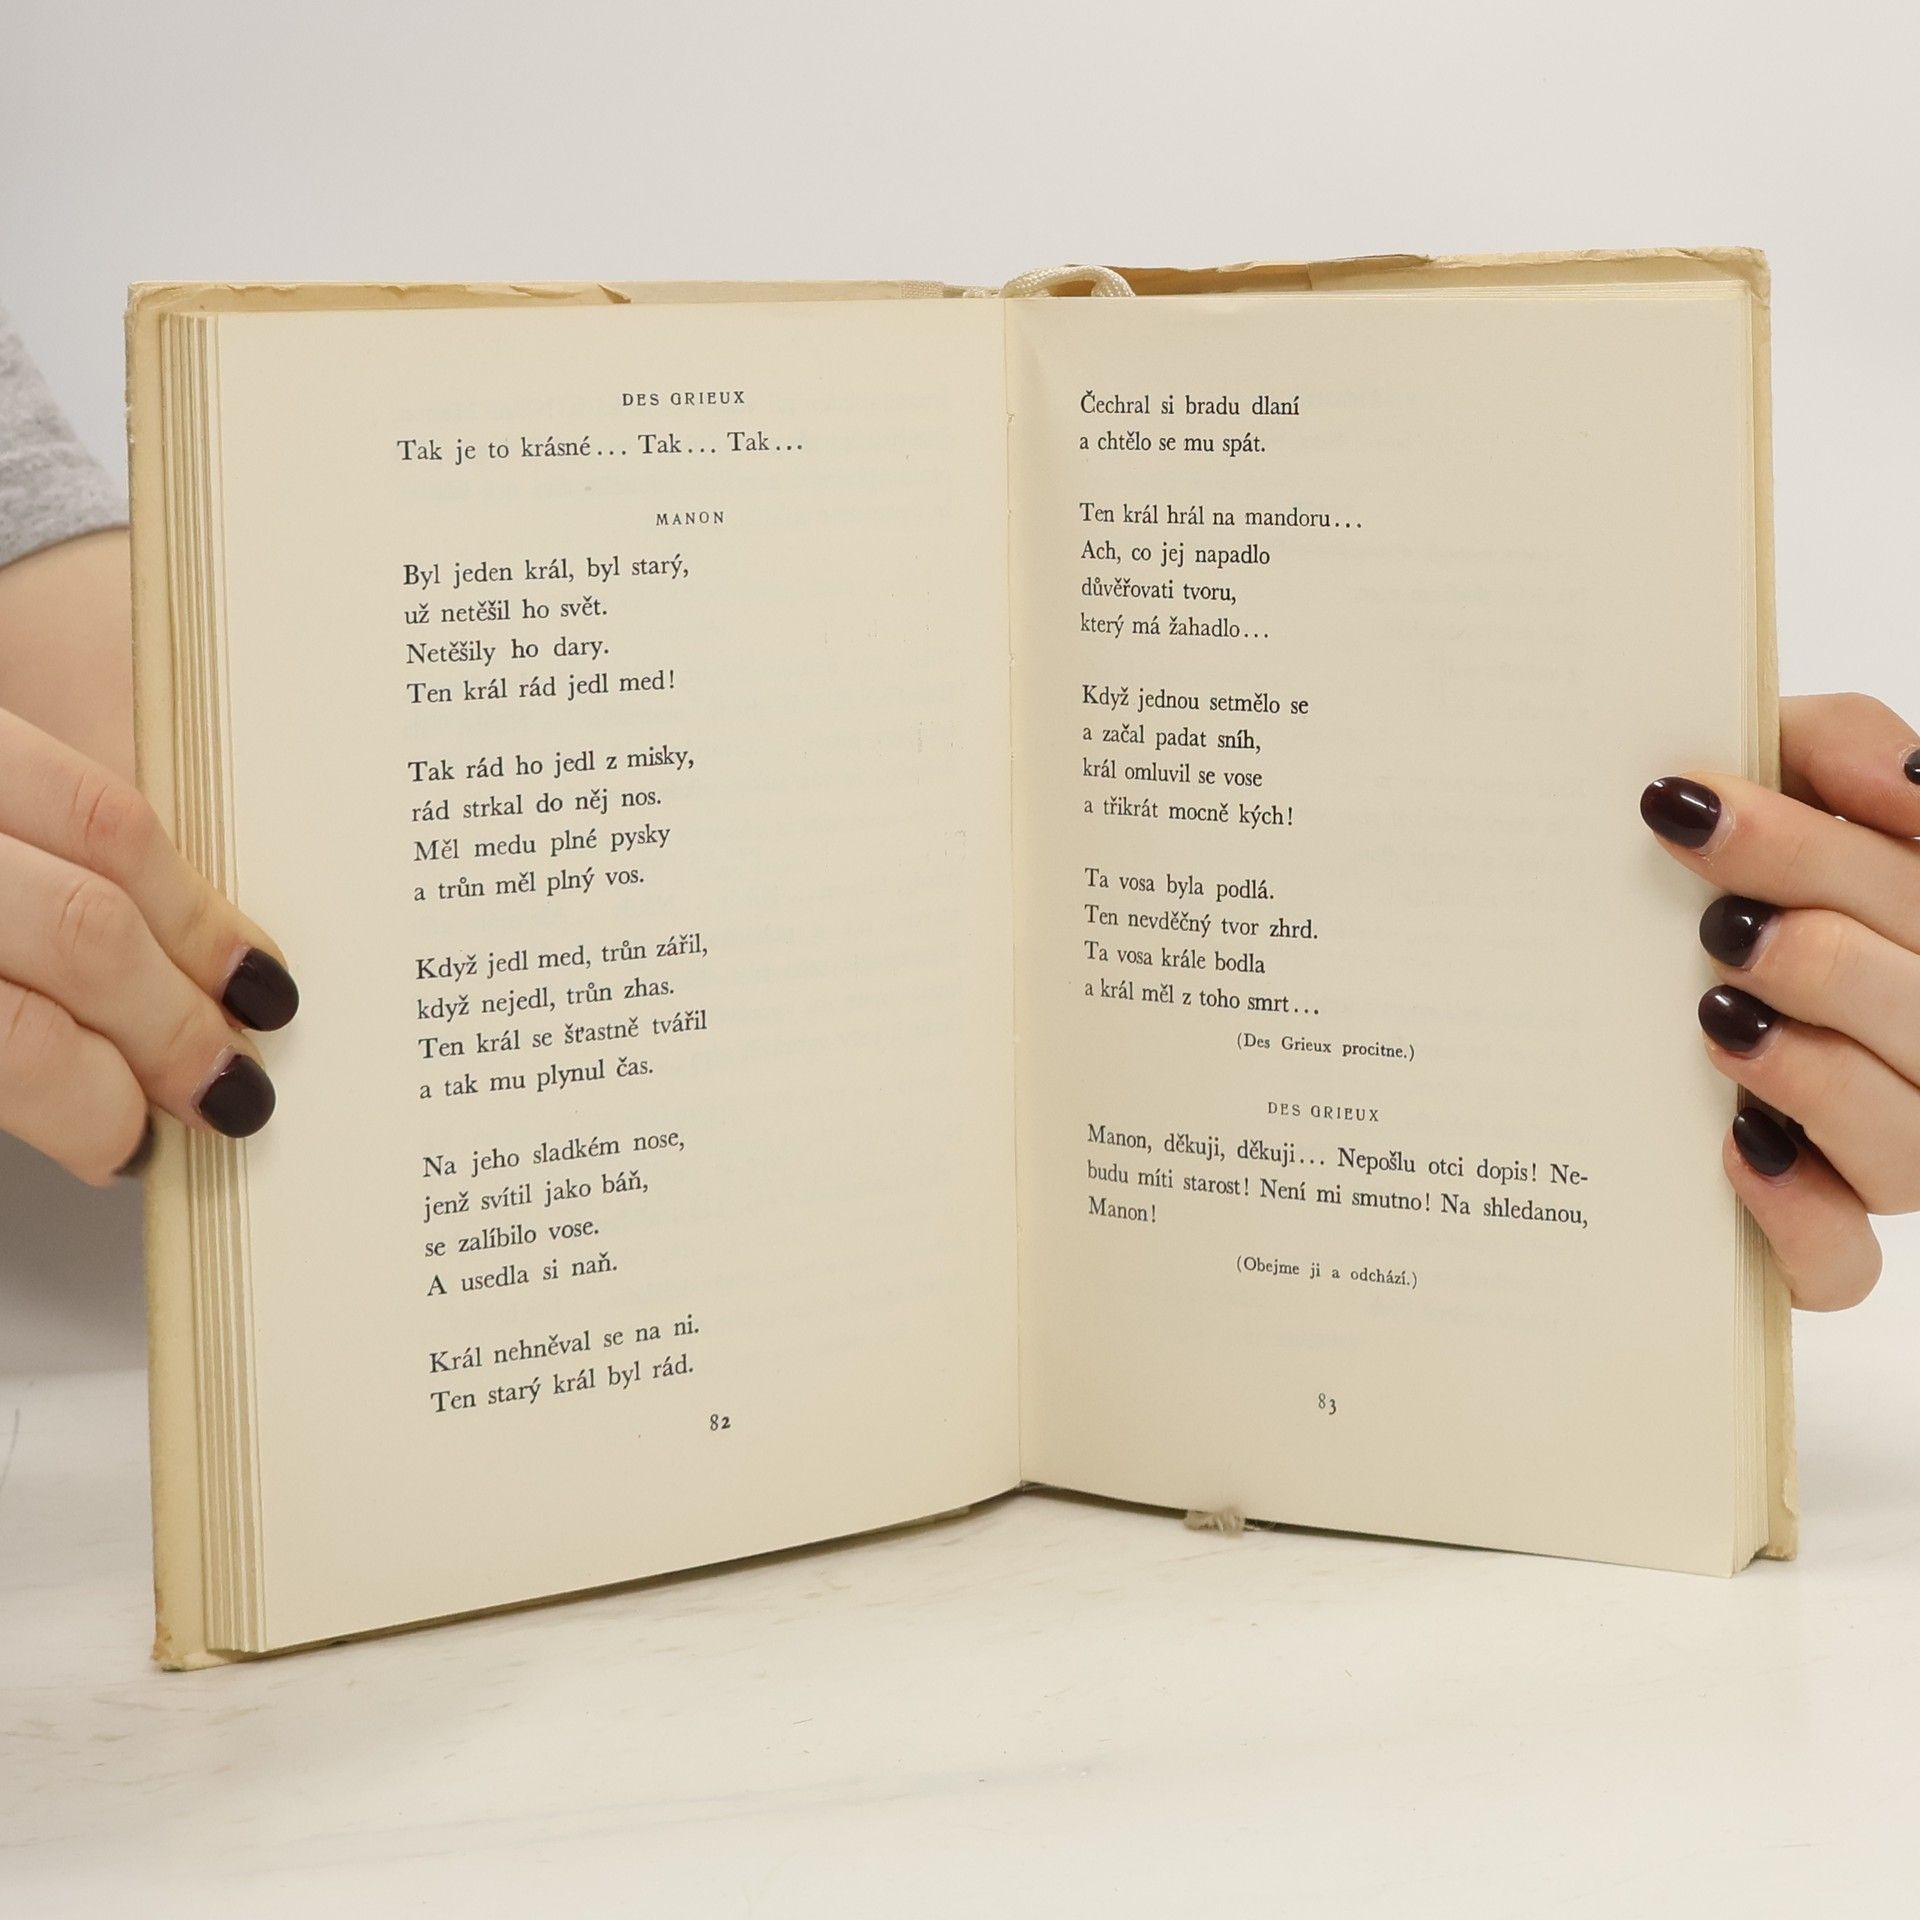 DES GRIEUX
Tak je to krásné... Tak... Tak...
MANON
Byl jeden král, byl starý,
už netěšil ho svět.
Netěšily ho dary.
Ten král rád jedl med!
Tak rád ho jedl z misky,
rád strkal do něj nos.
Měl medu plné pysky
a trůn měl plný vos.
Když jedl med, trůn zářil,
když nejedl, trůn zhas.
Ten král se šťastně tvářil
a tak mu plynul čas.
Na jeho sladkém nose,
jenž svítil jako báň,
se zalíbilo vose.
A usedla si naň.
Král nehněval se na ni.
Ten starý král byl rád.
82
Čechral si bradu dlaní
a chtělo se mu spát.
Ten král hrál na mandoru...
Ach, co jej napadlo
důvěřovati tvoru,
který má žahadlo...
Když jednou setmělo se
a začal padat sníh,
král omluvil se vose
a třikrát mocně kých!
Ta vosa byla podlá.
Ten nevděčný tvor zhrd.
Ta vosa krále bodla
a král měl z toho smrt...
(Des Grieux procitne.)
DES GRIEUX
Manon, děkuji, děkuji... Nepošlu otci dopis! Ne-
budu míti starost! Není mi smutno! Na shledanou,
Manon!
(Obejme ji a odchází.)
83